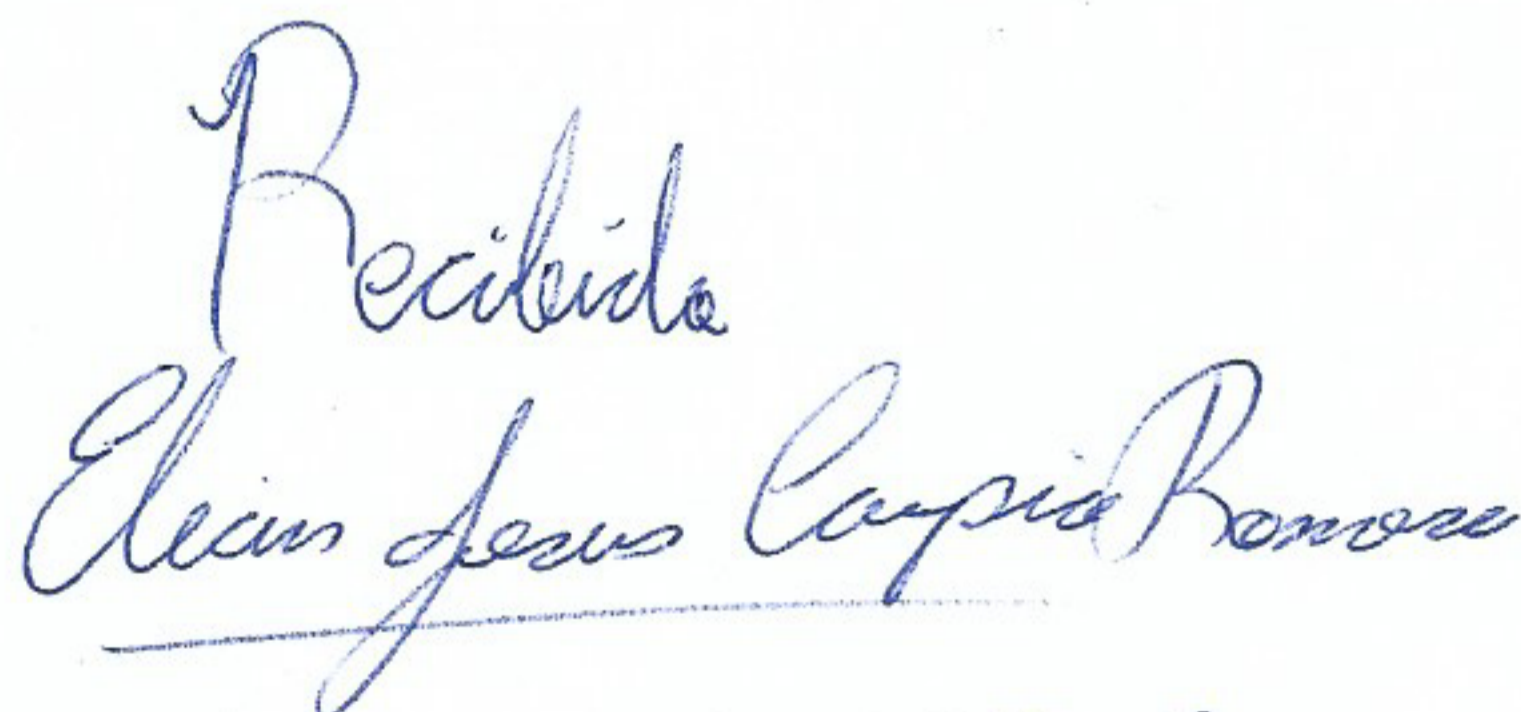 Recibido
Elvis Jesus Carpio Romero